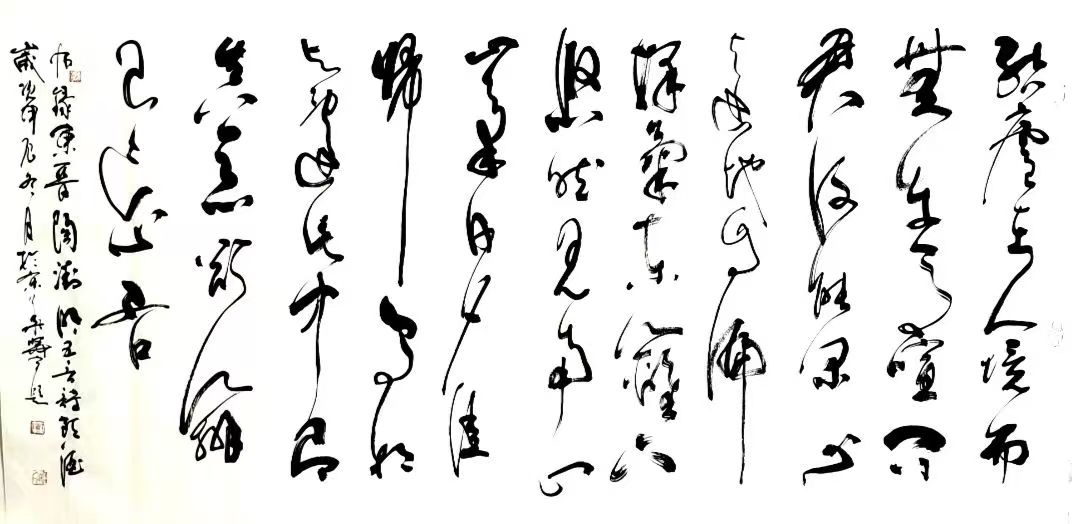 結廬在人境而
無車馬喧問
君何能爾心
遠地自偏
採菊東籬下
悠然見南山
山氣日夕佳
鳥相
與還此中有
真意欲辨
已忘言
録東晉陶淵明五言詩飲酒
歲冬月於京題